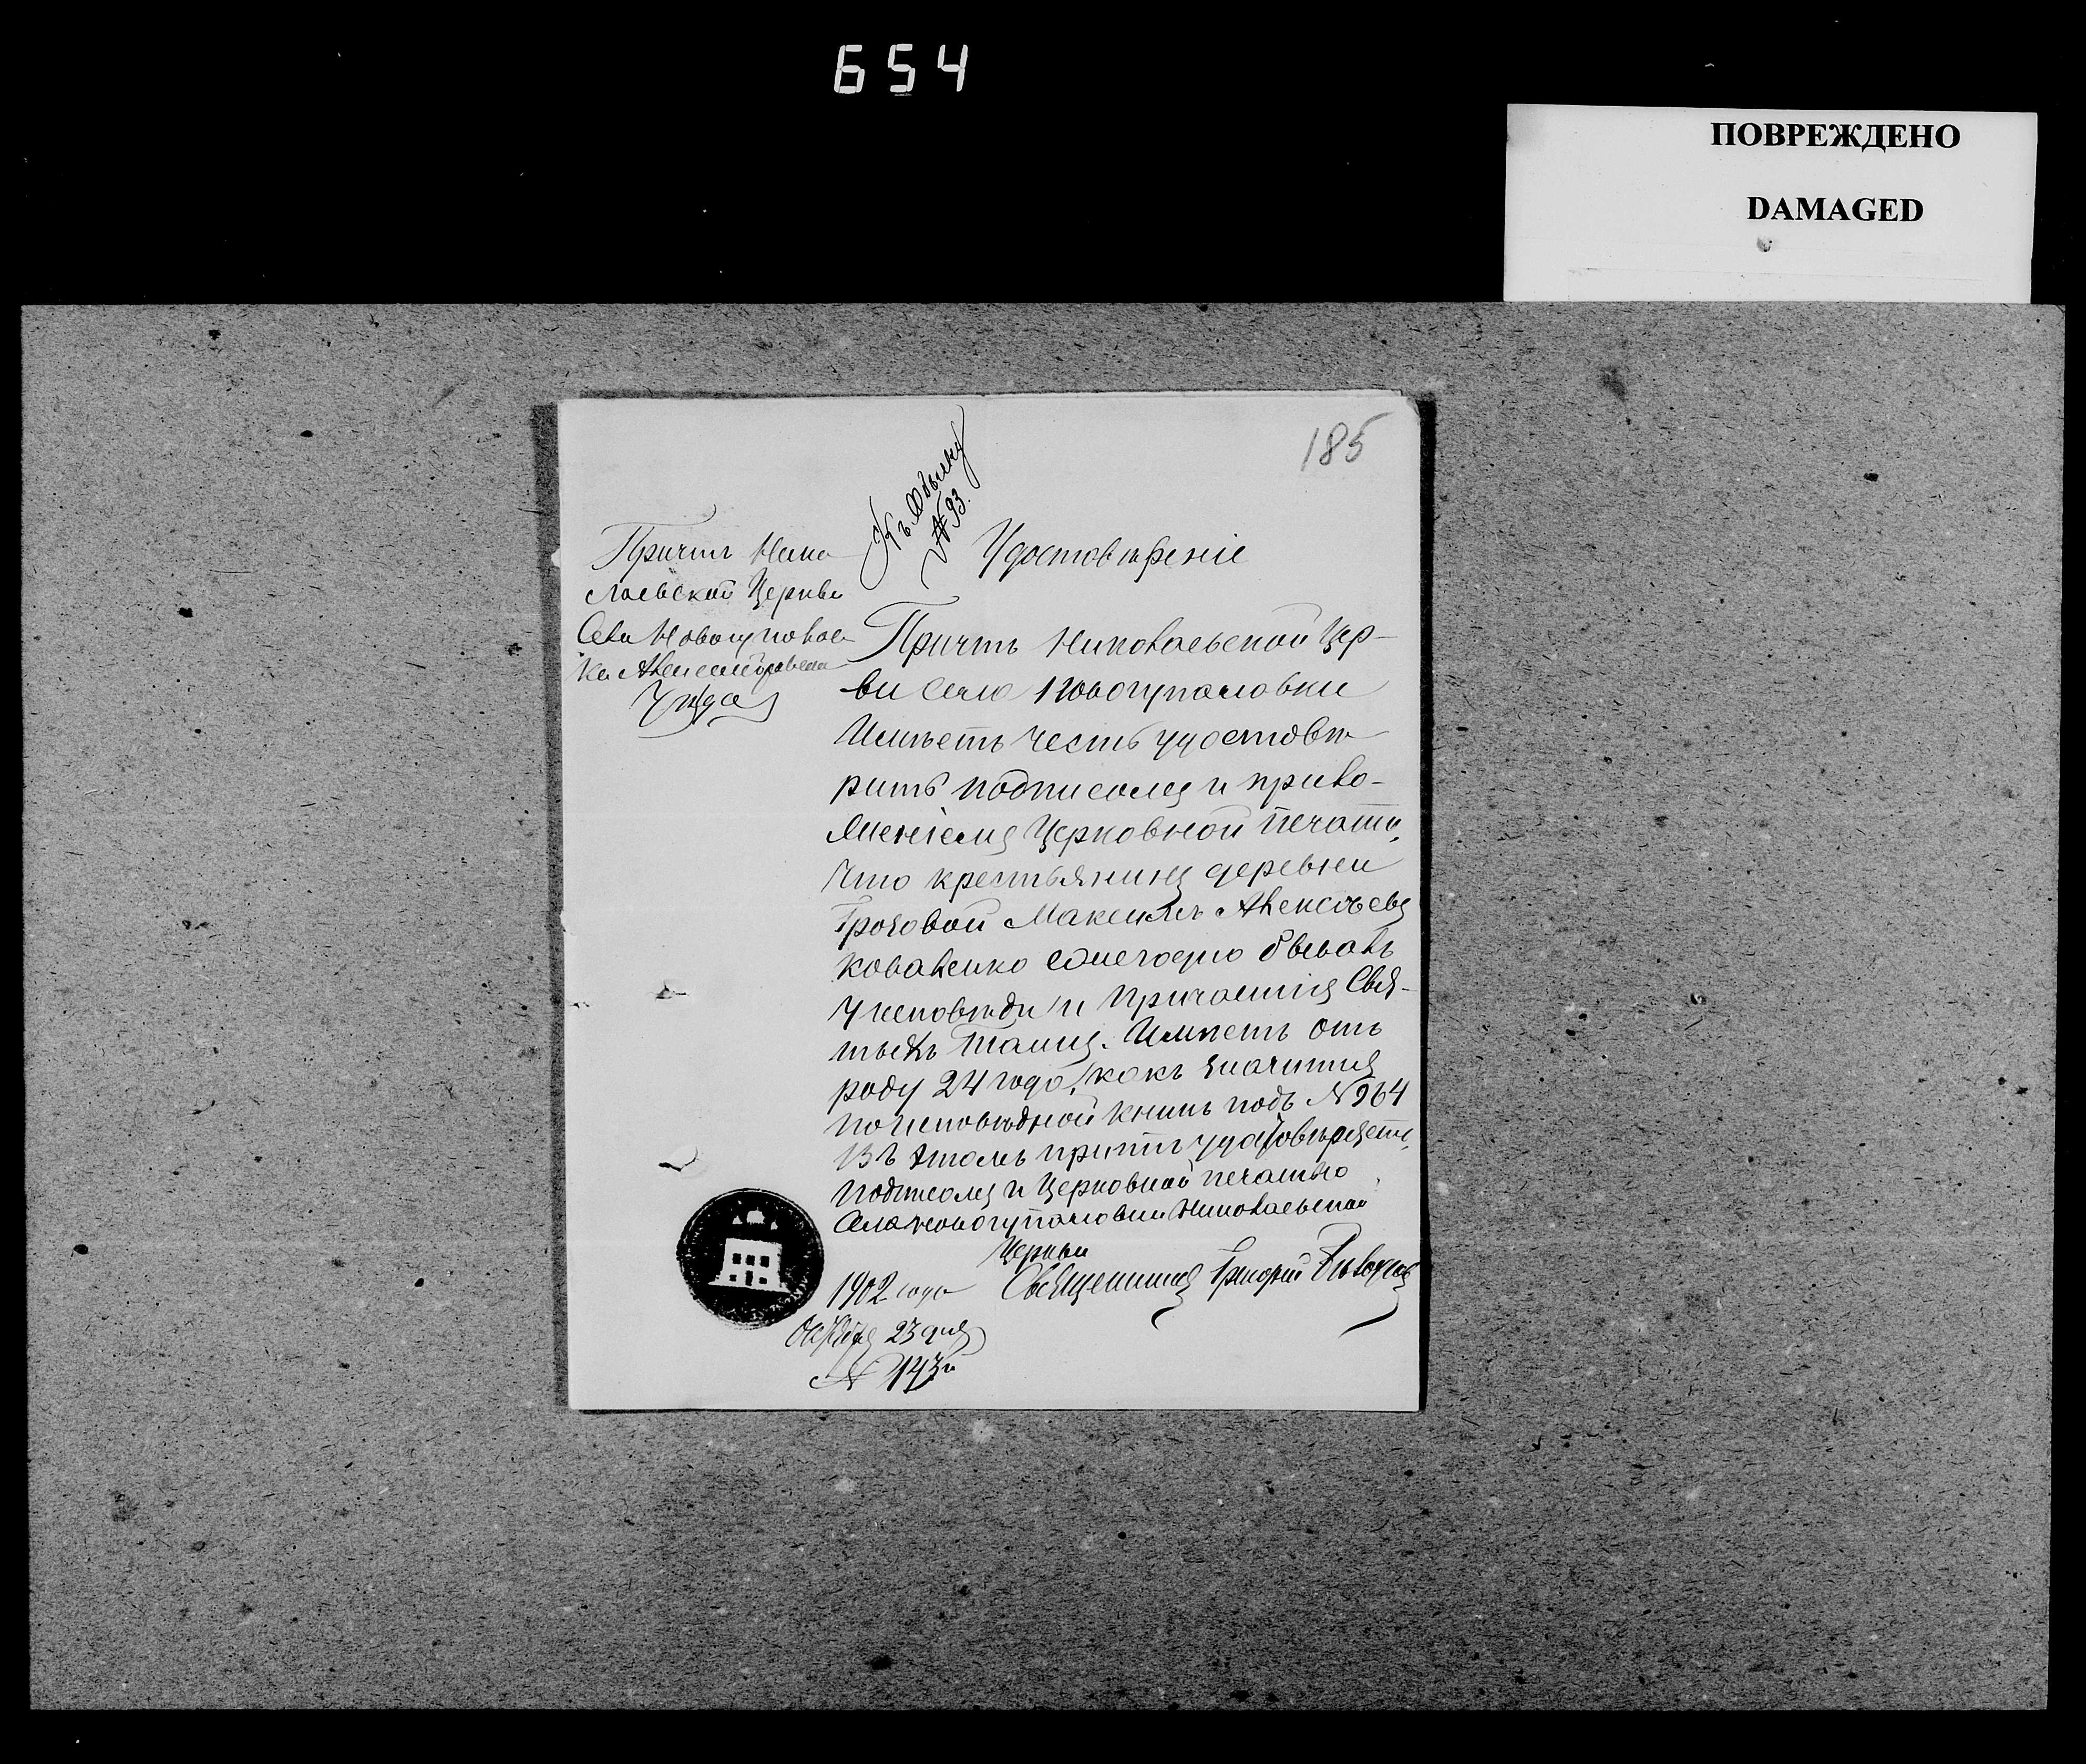 654
ПОВРЕЖДЕНО
DAMAGED
185
Къ Обыску
№ 93.
Причтъ Нико
лаевской Церкви
Села Новогупалов
ки Александровска
Уѣзда
Удостовѣреніе
Причтъ Николаевской Цер-
ви села Новогупаловки
Имѣетъ честь удостовѣ
рить подписомъ и прило-
женіемъ Церковной печати,
что крестьянинъ деревни
Грозовой Максимъ Алексѣевъ
Коваленко ежегодно бывалъ
у исповѣди и Причастія Свя-
тыхъ Таинъ. Имѣетъ отъ
роду 24 года, какъ значится
по исповѣдной книгѣ подъ № 964
Въ этомъ причтъ удостовѣряетъ,
подписомъ и Церковной печатью
Села Новогупаловки Николаевской
Церкви
1902 года Священникъ Григорій
Октября 23 дня
№ 143й